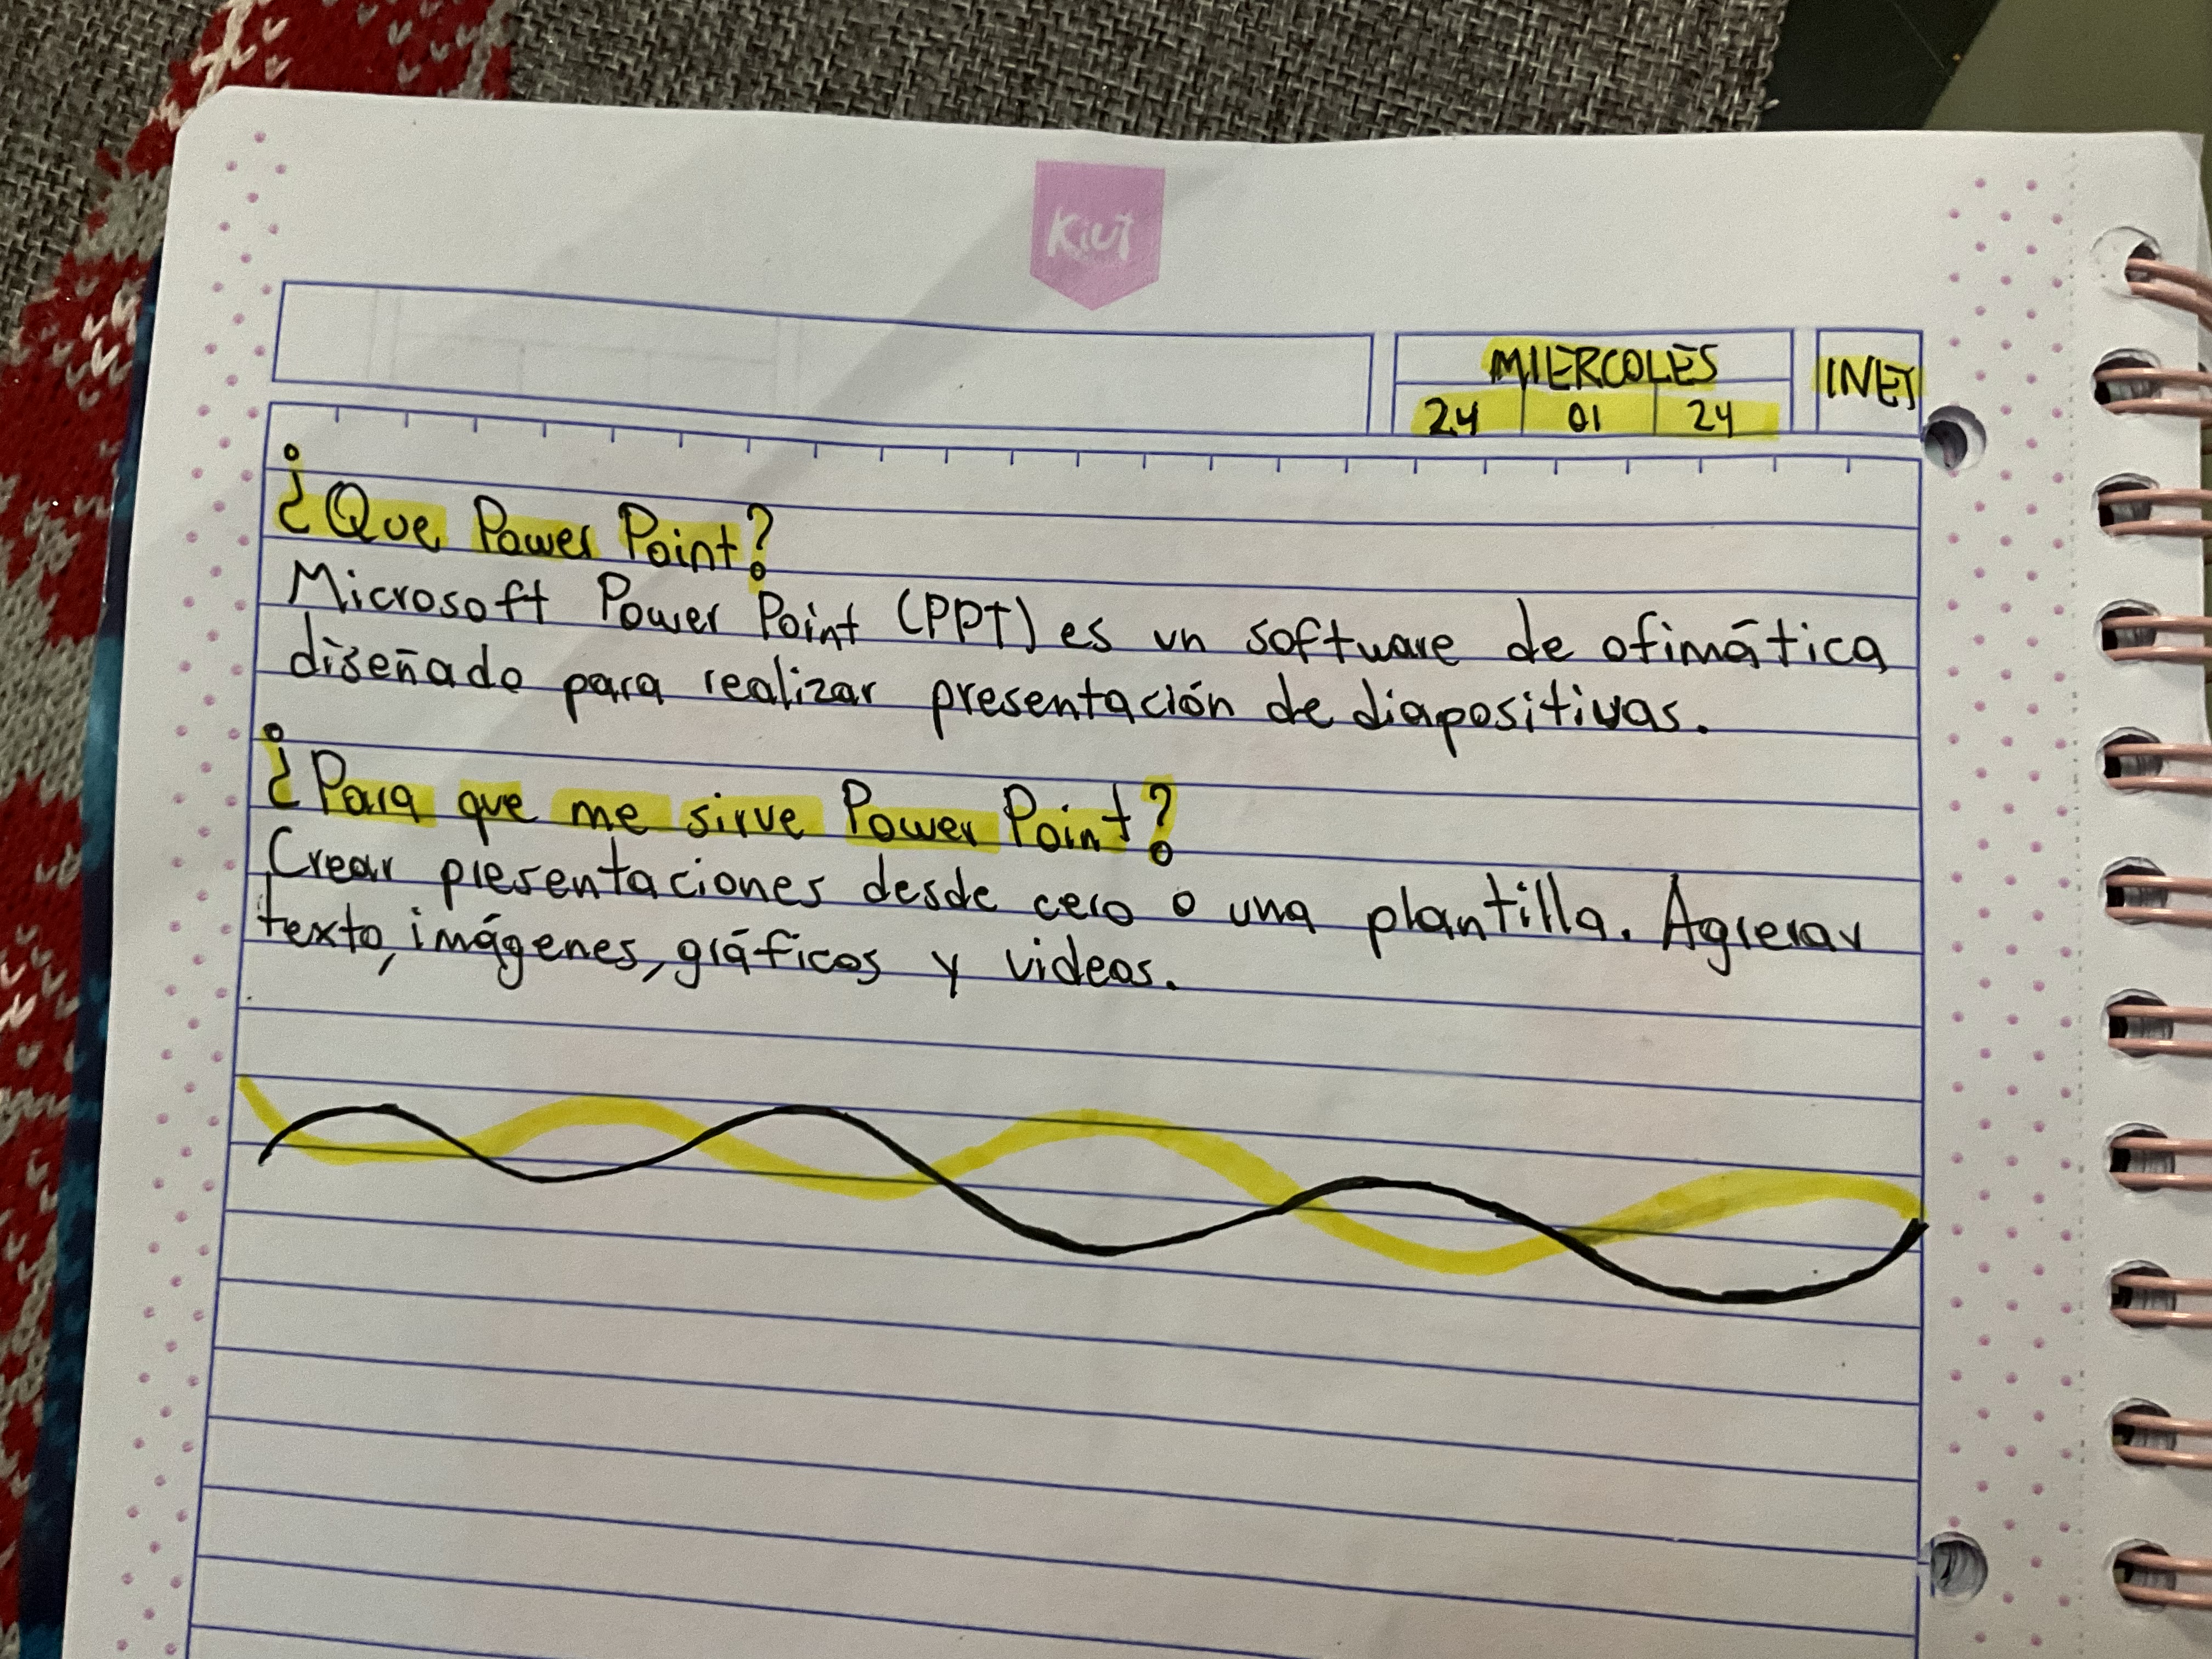 Kiut
MIERCOLES
24 01 24
INET
¿Que Power Point?
Microsoft Power Point (PPT) es un software de ofimática
diseñado para realizar presentación de diapositivas.
¿Para que me sirve Power Point?
Crear presentaciones desde cero o una plantilla. Agrerar
texto, imágenes, gráficos y videos.